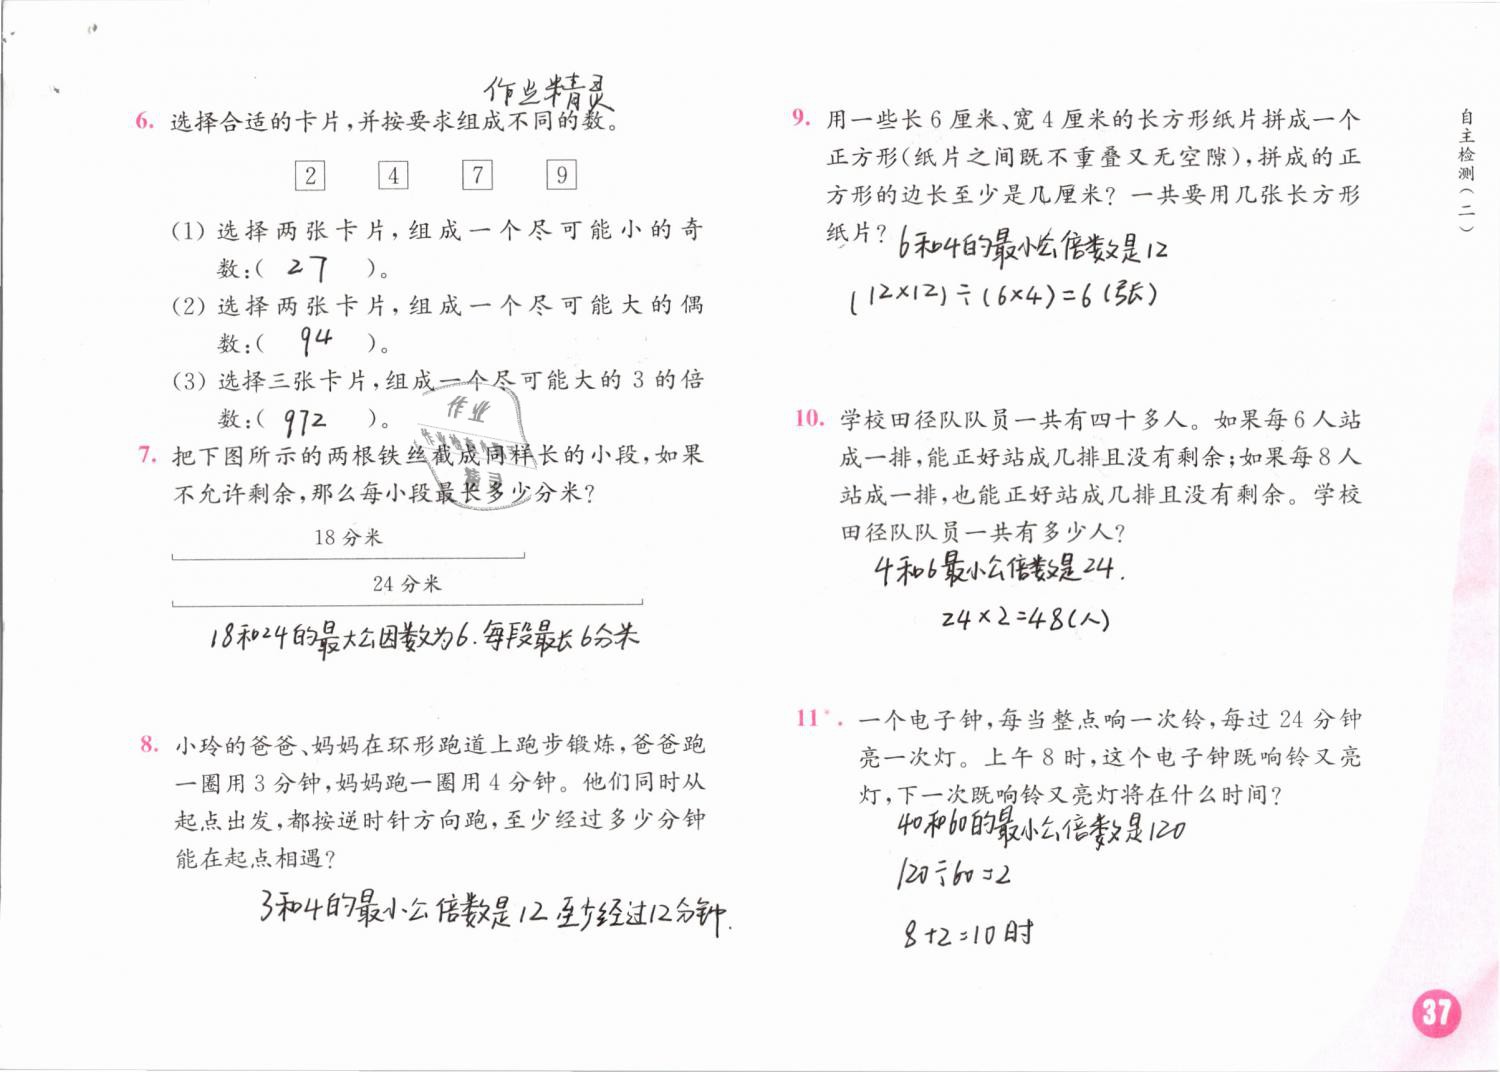 作业精灵
6. 选择合适的卡片,并按要求组成不同的数。
2 4 7 9
(1) 选择两张卡片,组成一个尽可能小的奇
数:( 27 )。
(2) 选择两张卡片,组成一个尽可能大的偶
数:( 94 )。
(3) 选择三张卡片,组成一个尽可能大的 3 的倍
数:( 972 )。
作业
精灵
7. 把下图所示的两根铁丝截成同样长的小段,如果
不允许剩余,那么每小段最长多少分米?
18 分米
24 分米
18和24的最大公因数为6.每段最长6分米
8. 小玲的爸爸、妈妈在环形跑道上跑步锻炼,爸爸跑
一圈用 3 分钟,妈妈跑一圈用 4 分钟。他们同时从
起点出发,都按逆时针方向跑,至少经过多少分钟
能在起点相遇?
3和4的最小公倍数是12 至少经过12分钟.
9. 用一些长 6 厘米、宽 4 厘米的长方形纸片拼成一个
正方形(纸片之间既不重叠又无空隙),拼成的正
方形的边长至少是几厘米? 一共要用几张长方形
纸片?
6和4的最小公倍数是12
(12×12)÷(6×4)=6(张)
10. 学校田径队队员一共有四十多人。如果每 6 人站
成一排,能正好站成几排且没有剩余;如果每 8 人
站成一排,也能正好站成几排且没有剩余。学校
田径队队员一共有多少人?
4和6最小公倍数是24.
24×2=48(人)
11*. 一个电子钟,每当整点响一次铃,每过 24 分钟
亮一次灯。上午 8 时,这个电子钟既响铃又亮
灯,下一次既响铃又亮灯将在什么时间?
40和60的最小公倍数是120
120÷60=2
8+2=10时
自主检测(二)
37